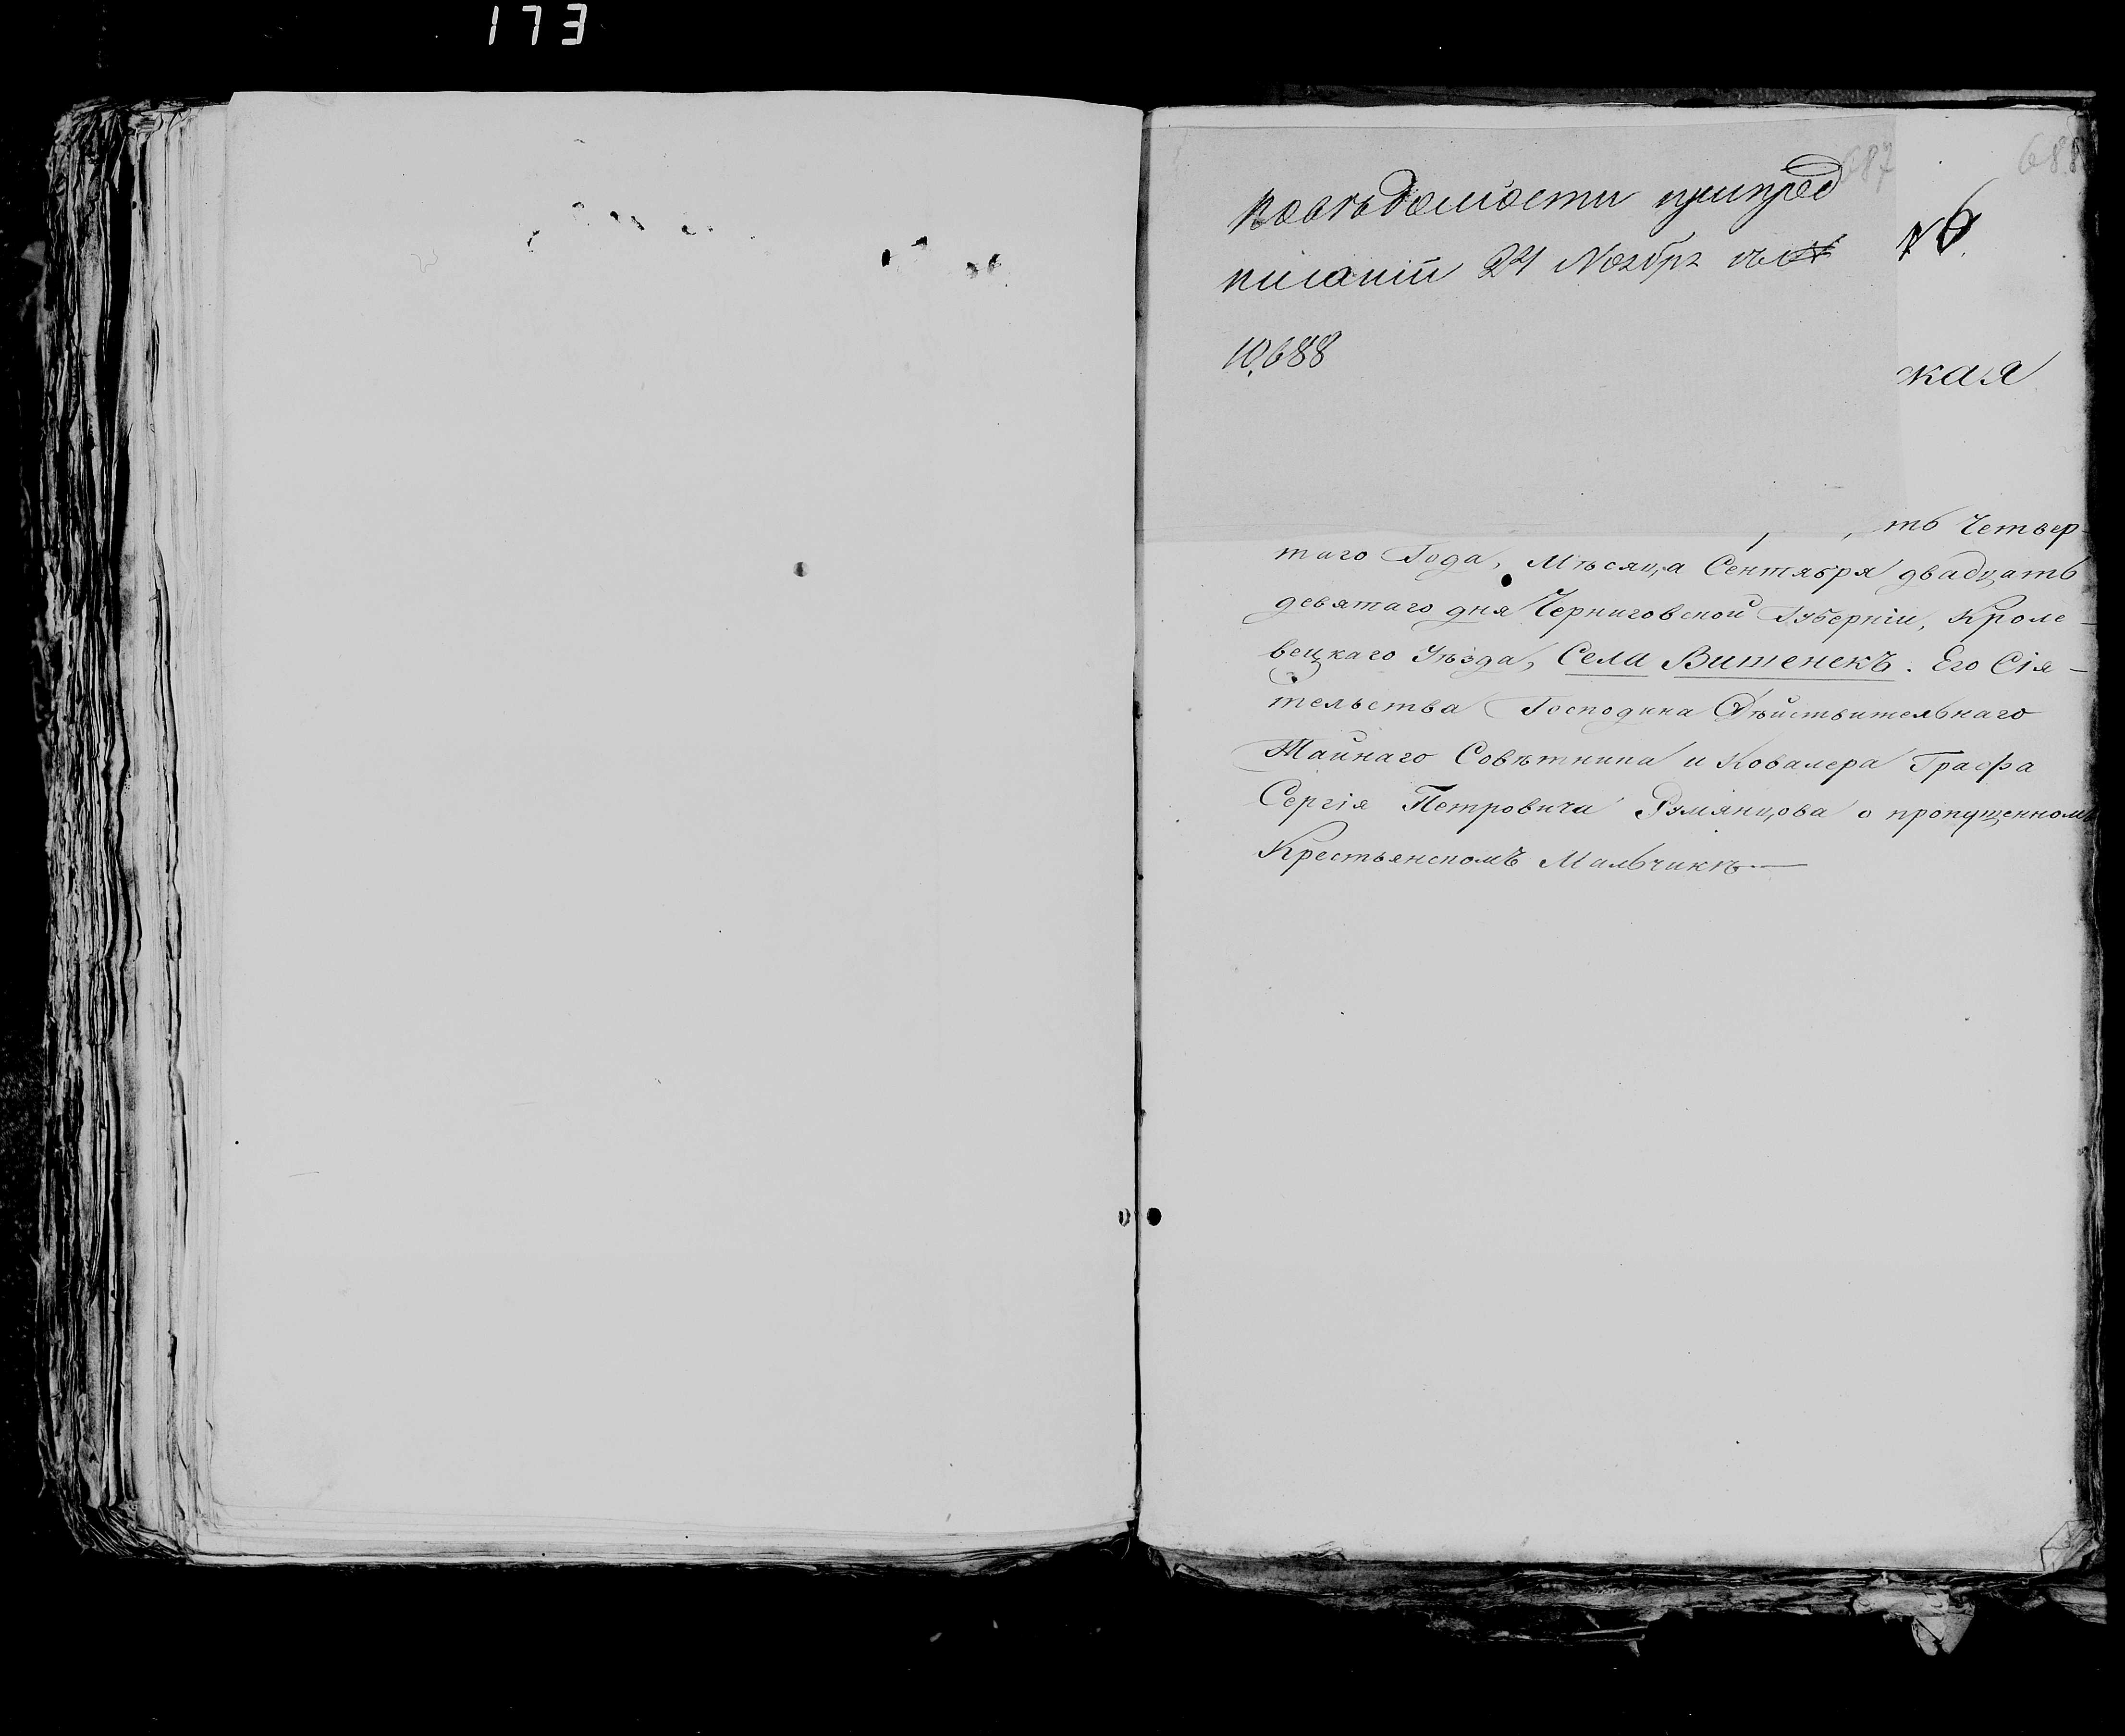 173
687
688
По вѣдомости при пред
писаніи 24 Ноября за №
10,688
№ 6.
ская
ть Четвер-
таго Года, Мѣсяца Сентября двадцать
девятаго дня Черниговской Губерніи, Кроле-
вецкаго Уѣзда, Села Витенекъ. Его Сія-
тельства Господина Дѣйствительнаго
Тайнаго Совѣтника и Ковалера Графа
Сергія Петровича Румянцова о пропущенномъ
Крестьянскомъ Мальчикѣ